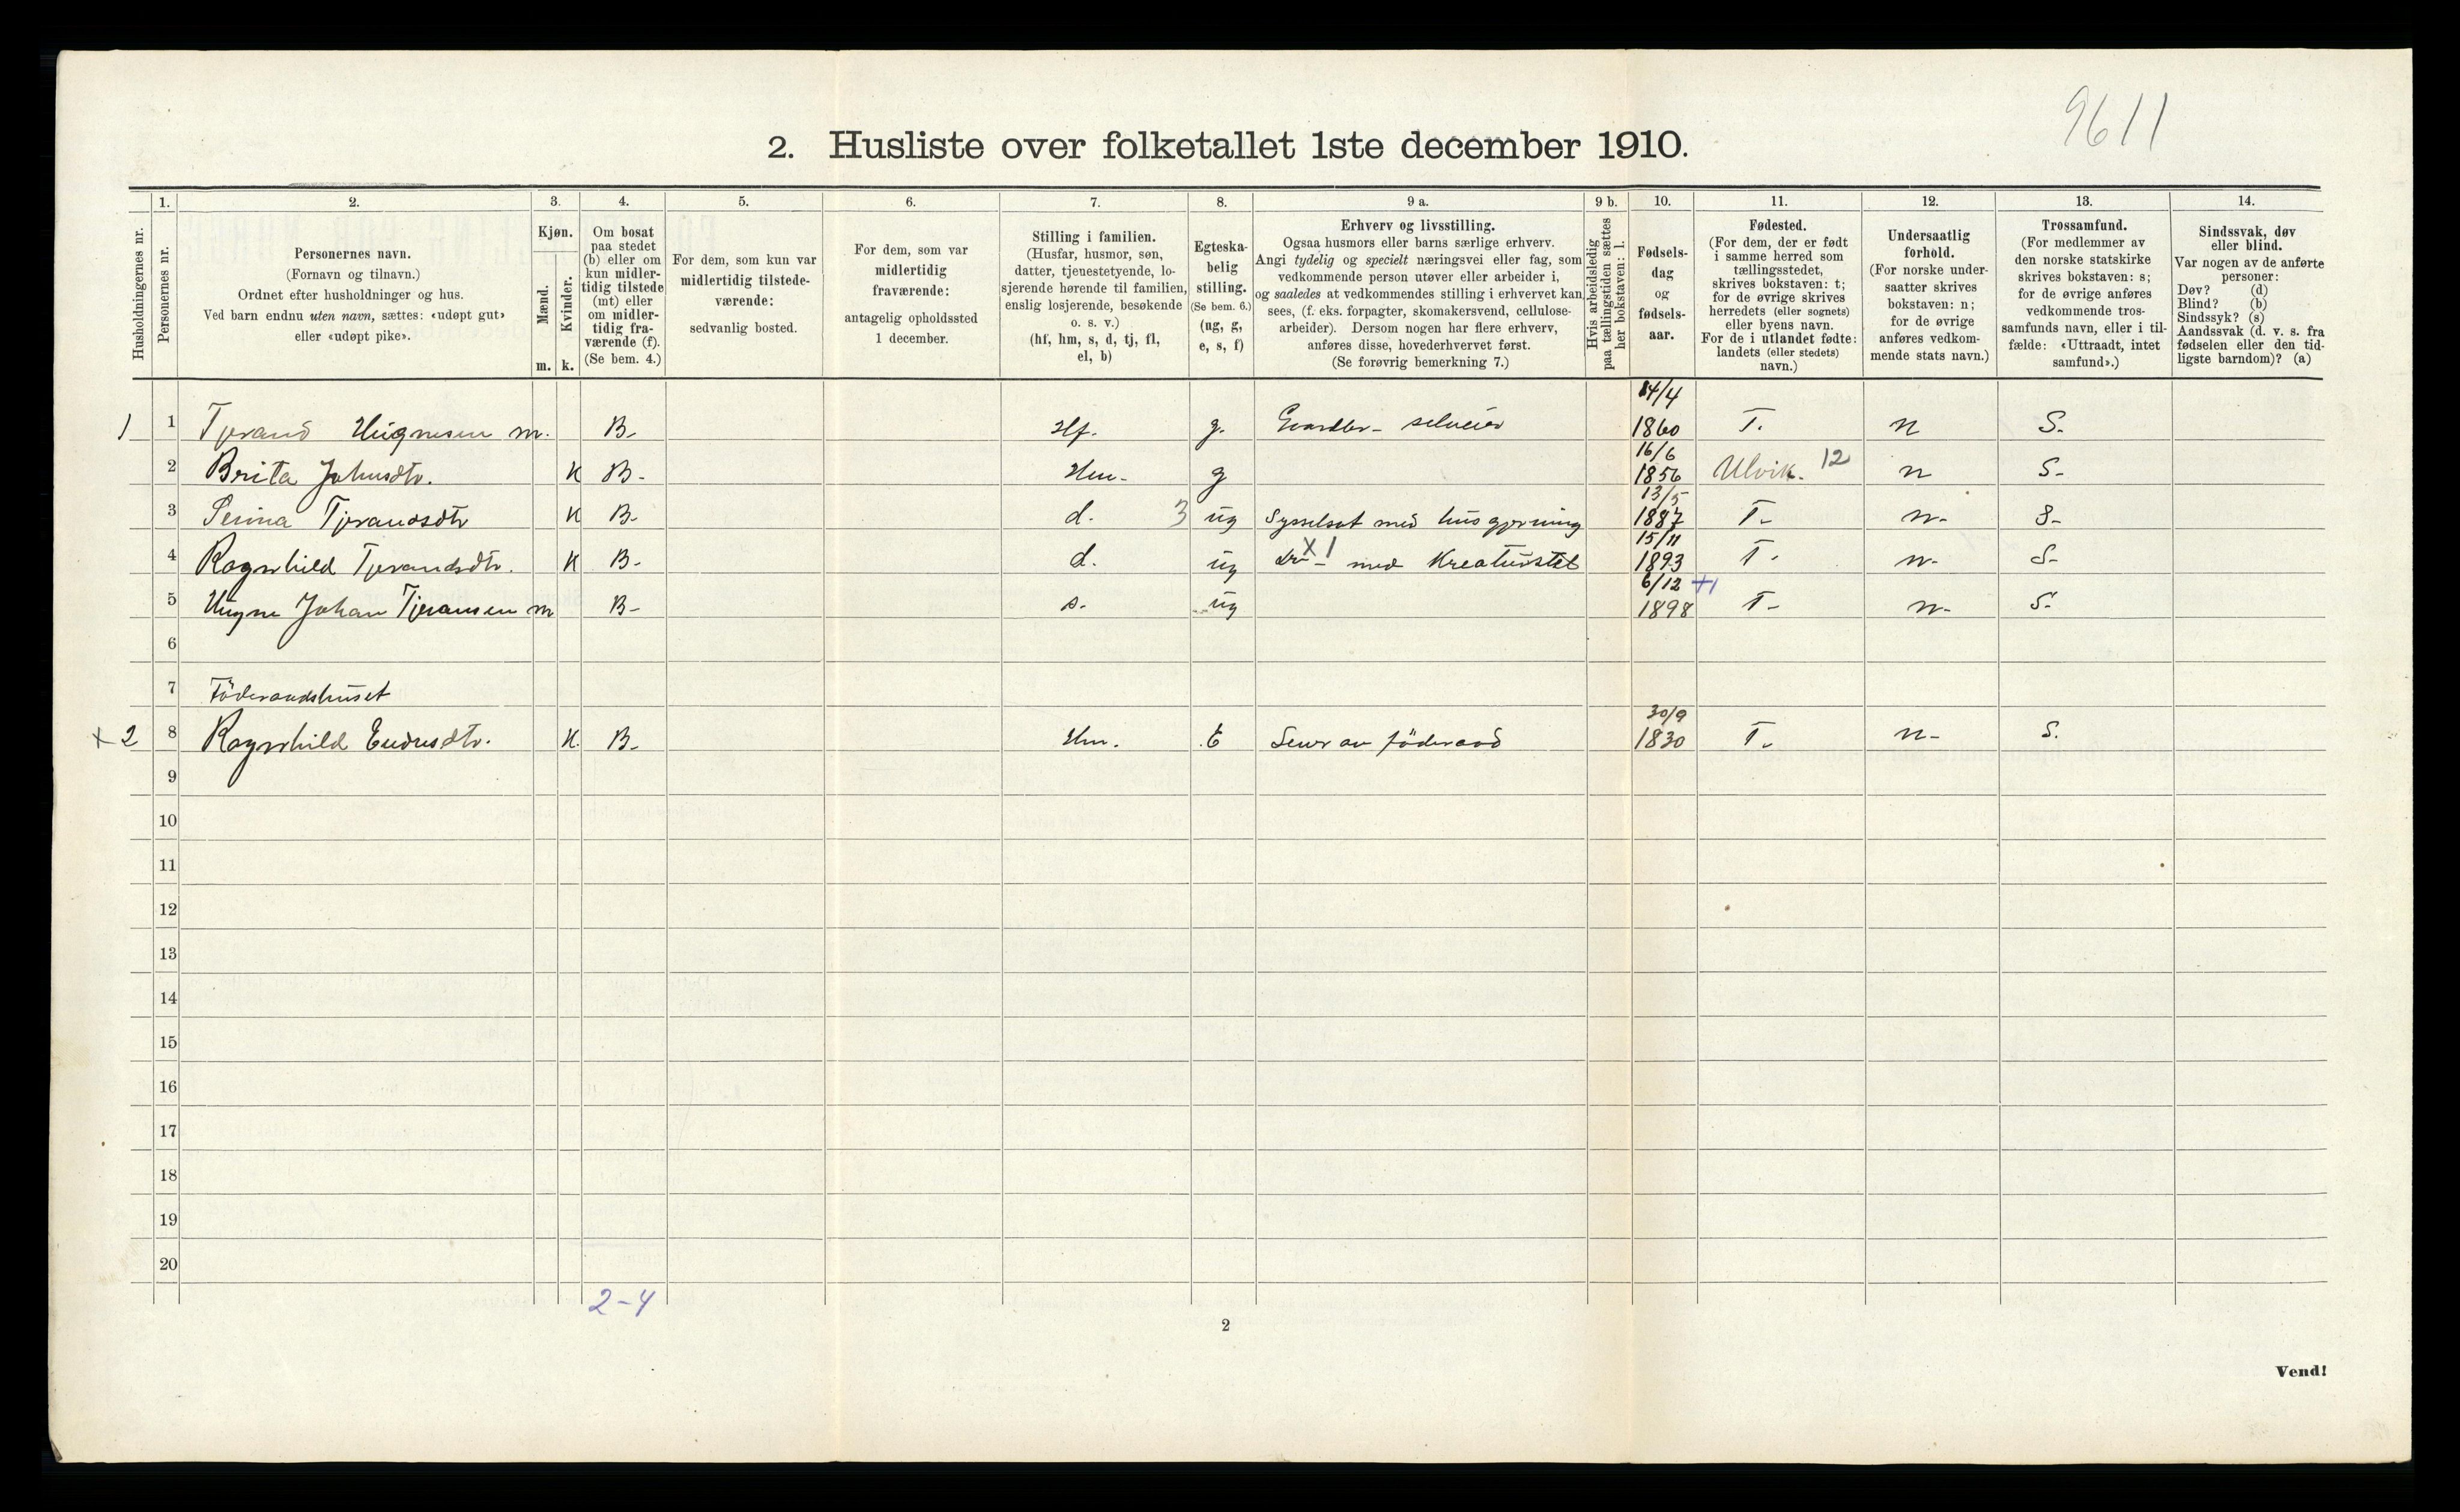 9611
2. Husliste over folketallet 1ste december 1910.
Husholdningernes nr.
1.
Personernes nr.
2.
Personernes navn.
(Fornavn og tilnavn.)
Ordnet efter husholdninger og hus.
Ved barn endnu uten navn, sættes: «udøpt gut»
eller «udøpt pike».
3.
Kjøn.
Mænd.
Kvinder.
m. k.
4.
Om bosat
paa stedet
(b) eller om
kun midler-
tidig tilstede
(mt) eller
om midler-
tidig fra-
værende (f).
(Se bem. 4.)
5.
For dem, som kun var
midlertidig tilstede-
værende:
sedvanlig bosted.
6.
For dem, som var
midlertidig
fraværende:
antagelig opholdssted
1 december.
7.
Stilling i familien.
(Husfar, husmor, søn,
datter, tjenestetyende, lo-
sjerende hørende til familien,
enslig losjerende, besøkende
o. s. v.)
(hf, hm, s, d, tj, fl,
el, b)
8.
Egteska-
belig
stilling.
(Se bem. 6.)
(ug, g,
e, s, f)
9 a.
Erhverv og livsstilling.
Ogsaa husmors eller barns særlige erhverv.
Angi tydelig og specielt næringsvei eller fag, som
vedkommende person utøver eller arbeider i,
og saaledes at vedkommendes stilling i erhvervet kan
sees, (f. eks. forpagter, skomakersvend, cellulose-
arbeider). Dersom nogen har flere erhverv,
anføres disse, hovederhvervet først.
(Se forøvrig bemerkning 7.)
9 b.
Hvis arbeidsledig
paa tællingstiden sættes
her bokstaven: l.
10.
Fødsels-
dag
og
fødsels-
aar.
11.
Fødested.
(For dem, der er født
i samme herred som
tællingsstedet,
skrives bokstaven: t;
for de øvrige skrives
herredets (eller sognets)
eller byens navn.
For de i utlandet fødte:
landets (eller stedets)
navn.)
12.
Undersaatlig
forhold.
(For norske under-
saatter skrives
bokstaven: n;
for de øvrige
anføres vedkom-
mende stats navn.)
13.
Trossamfund.
(For medlemmer av
den norske statskirke
skrives bokstaven: s;
for de øvrige anføres
vedkommende tros-
samfunds navn, eller i til-
fælde: «Uttraadt, intet
samfund».)
14.
Sindssvak, døv
eller blind.
Var nogen av de anførte
personer:
Døv? (d)
Blind? (b)
Sindssyk? (s)
Aandssvak (d. v. s. fra
fødselen eller den tid-
ligste barndom)? (a)
1 1 m. B. Hf. g. selveier 14/4 1860 T. n S.
2 Brita Johnsdtr. K B. Hm. g 16/6 1856 Ulvik. 12 n S.
3 K B. d. 3 ug Sysselsat med husgjerning 13/5 1887 T. n. S.
4 Ragnhild Tjerandsdtr. K B. d. ug x 1 med Kreaturstel 15/11 1893 T. n. S.
5 Johan m B. s. ug 6/12 1898 +1 T. n. S.
6
7 Föderaadshuset
x 2 8 Ragnhild Endresdtr. K. B. Hm. E föderaad 30/9 1830 T. n. S.
9
10
11
12
13
14
15
16
17
18
19
20
2-4
2
Vend!